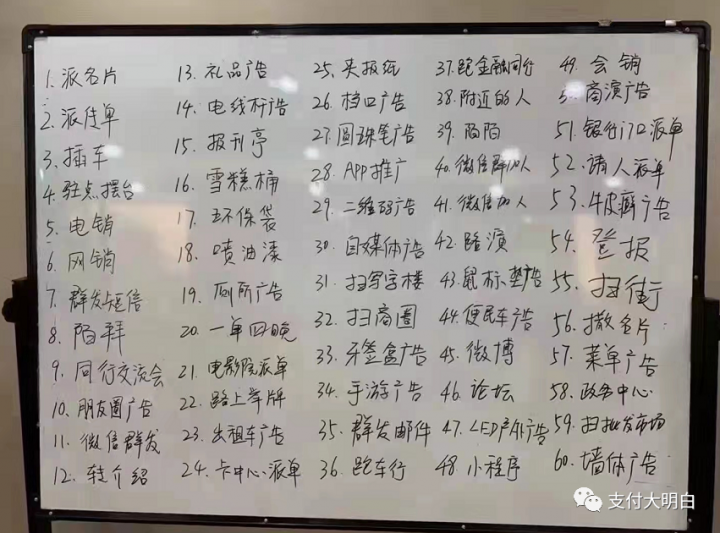 1. 派名片
2. 派传单
3. 插车
4. 驻点摆台
5. 电销
6. 网销
7. 群发短信
8. 陌拜
9. 同行交流会
10. 朋友圈广告
11. 微信群发
12. 转介绍
13. 礼品广告
14. 电线杆广告
15. 报刊亭
16. 雪糕桶
17. 环保袋
18. 喷油漆
19. 厕所广告
20. 一单四晚
21. 电影院派单
22. 路上举牌
23. 出租车广告
24. 卡中心派单
25. 夹报纸
26. 档口广告
27. 圆珠笔广告
28. APP推广
29. 二维码广告
30. 自媒体广告
31. 扫写字楼
32. 扫商圈
33. 牙签盒广告
34. 手游广告
35. 群发邮件
36. 跑车行
37. 跑金融同行
38. 附近的人
39. 陌陌
40. 微信群加人
41. 微信加人
42. 路演
43. 鼠标垫广告
44. 便民车广告
45. 微博
46. 论坛
47. LED广告
48. 小程序
49. 会销
50. 商演广告
51. 银行门口派单
52. 请人派单
53. 牛皮癣广告
54. 登报
55. 扫街
56. 撒名片
57. 菜单广告
58. 政务中心
59. 扫批发市场
60. 墙体广告
支付大明白